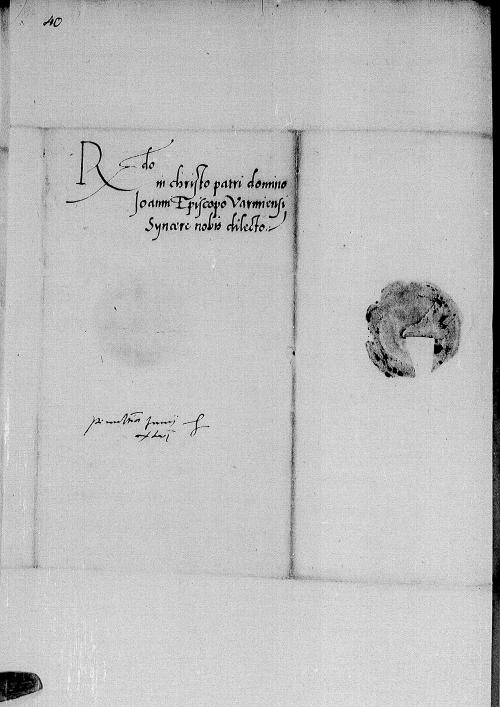 40
Rdo
in christo patri domino
Ioanni Episcopo Varmiensi
Syncere nobis dilecto.
xlvi